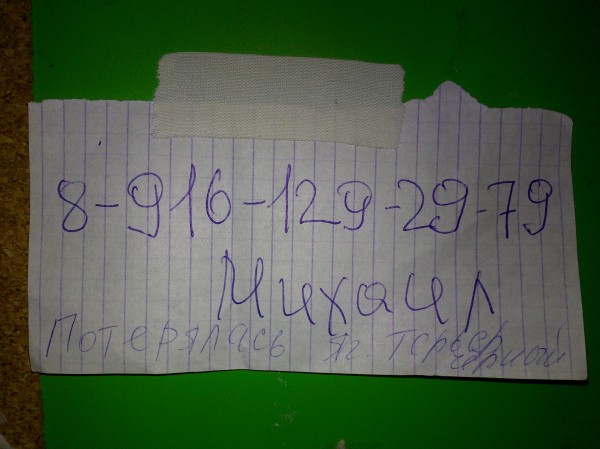 8-916-129-29-79
Михаил
Потерялась яг. терьер
черный